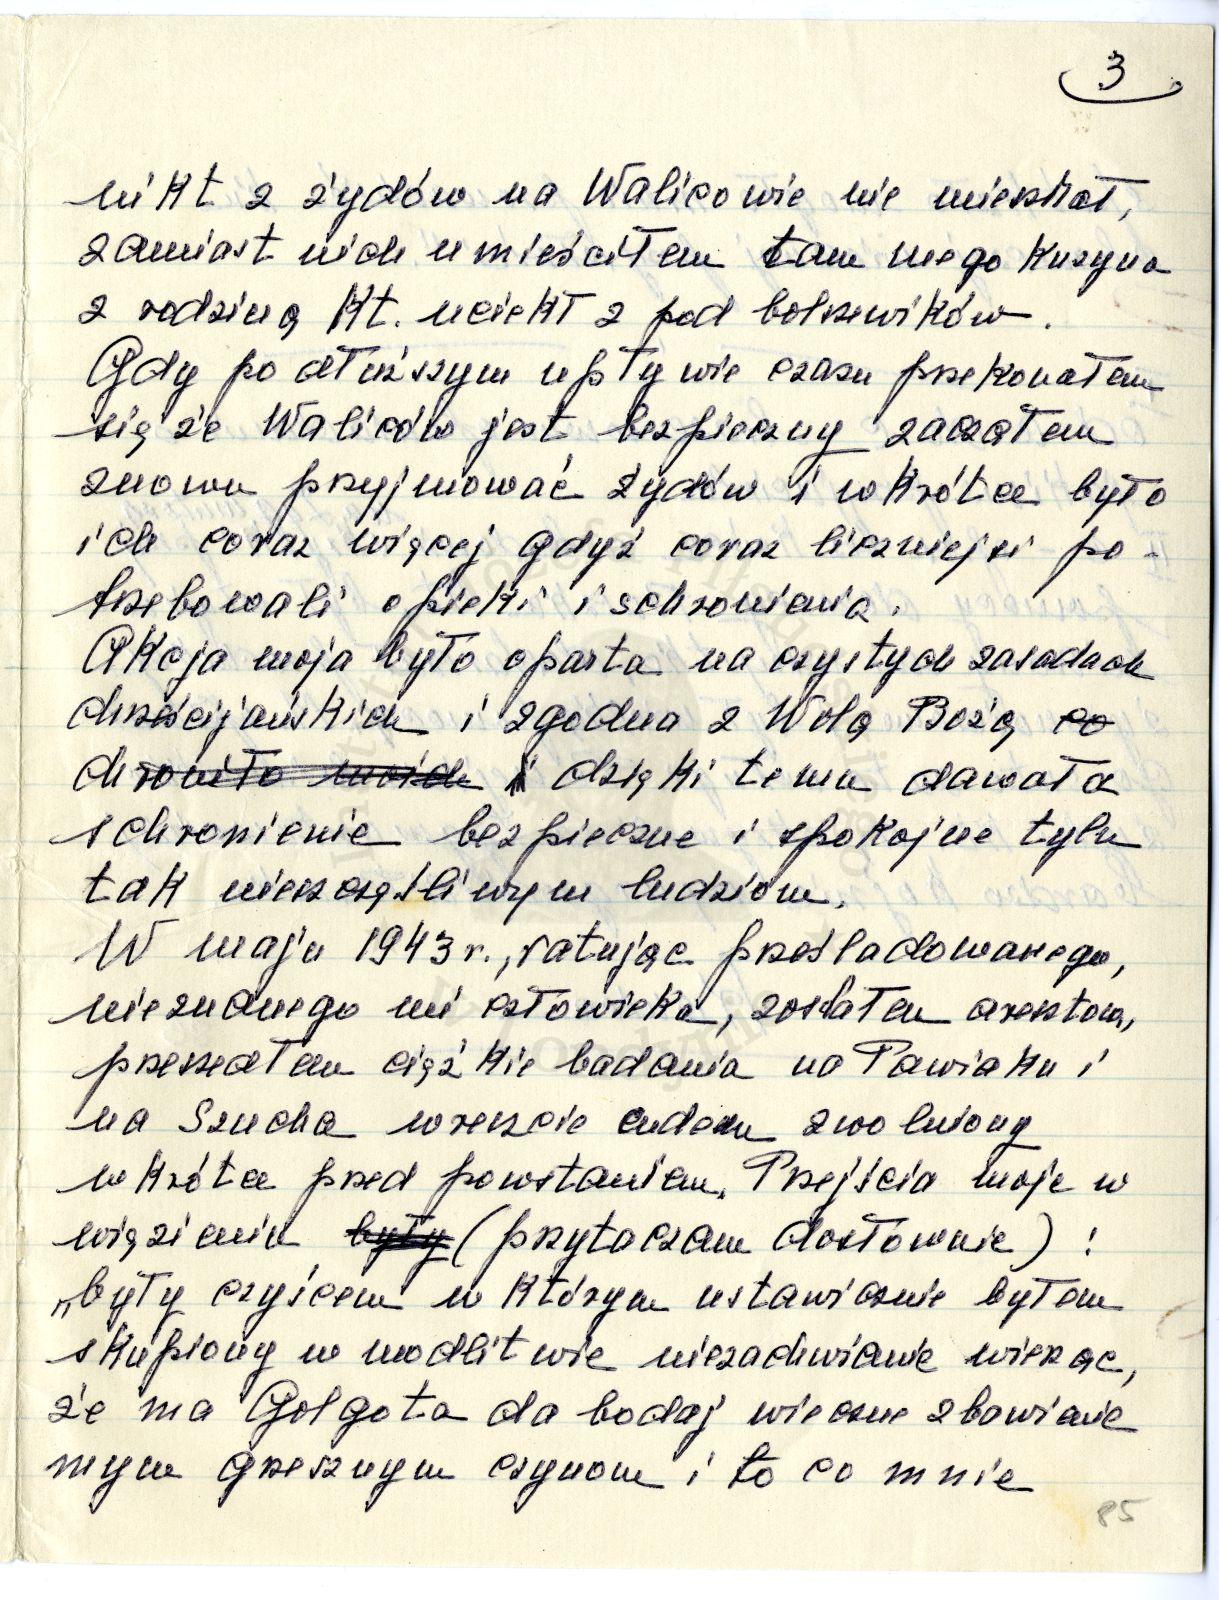 3
nikt z żydów na Walicowie nie mieszkał,
zamiast nich umieściłem tam mego kuzyna
z rodziną kt. uciekł z pod bolszewików.
Gdy po dłuższym upływie czasu przekonałem
się że Waliców jest bezpieczny zacząłem
znowu przyjmować żydów i wkrótce było
ich coraz więcej gdyż coraz liczniejsi po-
trzebowali opieki i schronienia.
Akcja moja była oparta na czystych zasadach
chrześcijańskich i zgodna z Wolą Bożą co
chroniło moich i dzięki temu dawała
schronienie bezpieczne i spokojne tylu
tak nieszczęśliwym ludziom.
W maju 1943 r., ratując prześladowanego,
nieznanego mi człowieka, zostałem aresztow,
przeszedłem ciężkie badania na Pawiaku i
na Szucha wreszcie cudem zwolniony
wkrótce przed powstaniem. Przejścia moje w
więzieniu były (przytaczam dosłownie):
„były czyśćem w którym ustawicznie byłem
skupiony w modlitwie niezachwianie wierząc,
że ma Golgota da bodaj wieczne zbawienie
mym grzesznym czynom i to co mnie
85